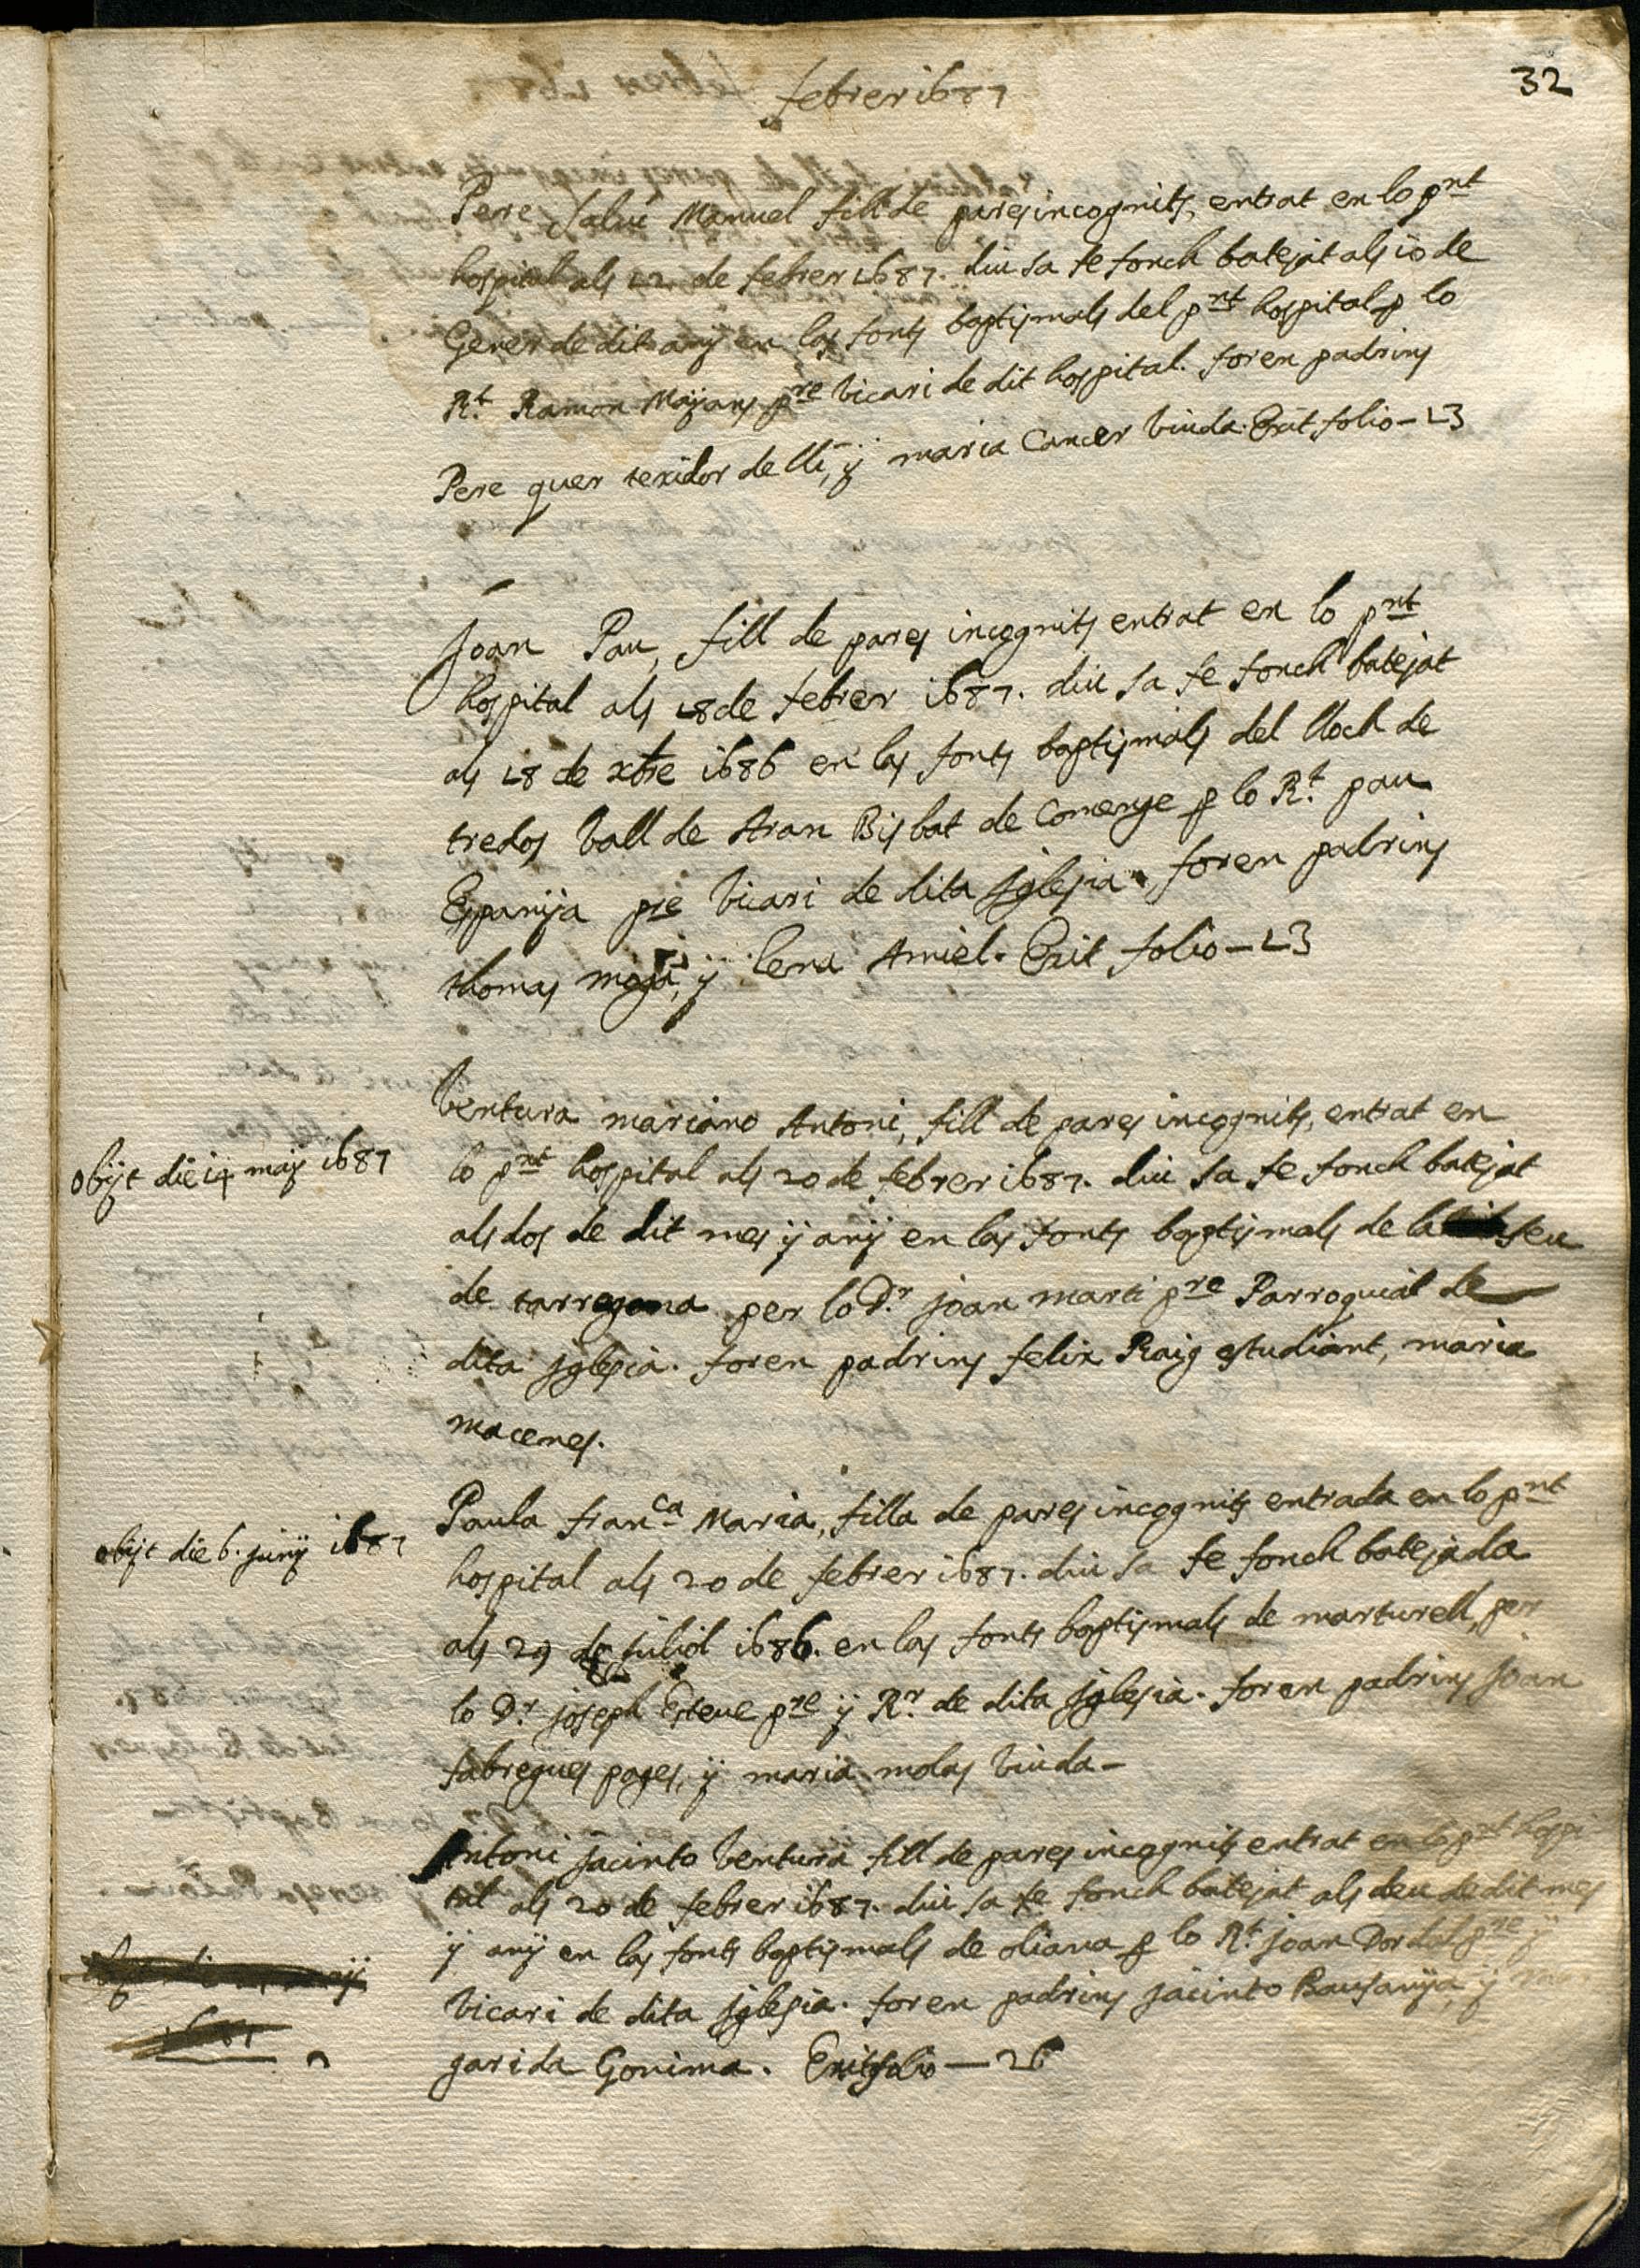 32
febrer 1687
Pere Salui Manuel fill de pares incognits, entrat en lo pnt
hospital als 12 de febrer 1687. diu sa fe fonch batejat als 10 de
Gener de dit any en las fonts baptismals del pnt hospital p lo
Rt Ramon Mayans pre vicari de dit hospital. foren padrins
Pere quer texidor de lli, ÿ maria Cancer viuda. Exit folio - 23
Joan Pau, fill de pares incognits entrat en lo pnt
hospital als 18 de febrer 1687. diu sa fe fonch batejat
als 18 de xbre 1686 en las fonts baptismals del lloch de
tredos vall de Aran Bisbat de Comenge p lo Rt pau
Espanÿa pre vicari de dita Jglesia. foren padrins
thomas moga, ÿ lena Amiel. Exit folio - 23
Ventura mariano Antoni, fill de pares incognits, entrat en
obijt die 14 maÿ 1687
lo pnt hospital als 20 de febrer 1687. diu sa fe fonch batejat
als dos de dit mes ÿ anÿ en las fonts baptismals de la seu
de tarragona per lo Dr joan marti pre Parroquial de
dita Jglesia. foren padrins felix Raig estudiant, maria
macenes.
Paula franca Maria, filla de pares incognits entrada en lo pnt
obijt die 6. junÿ 1687
hospital als 20 de febrer 1687. diu sa fe fonch batejada
als 29 de juliol 1686. en las fonts baptismals de marturell, per
lo Dr joseph Esteue pre ÿ Rr de dita Jglesia. foren padrins Joan
fabregues pages, ÿ maria molas viuda -
Antoni jacinto Ventura fill de pares incognits entrat en lo pnt hospi
tal als 20 de febrer 1687. diu sa fe fonch batejat als deu de dit mes
ÿ anÿ en las fonts baptismals de oliana p lo Rt joan Dordal pre ÿ
vicari de dita Jglesia. foren padrins jacinto Bausanÿa, ÿ mar
garida Gonima. Exit folio - 26